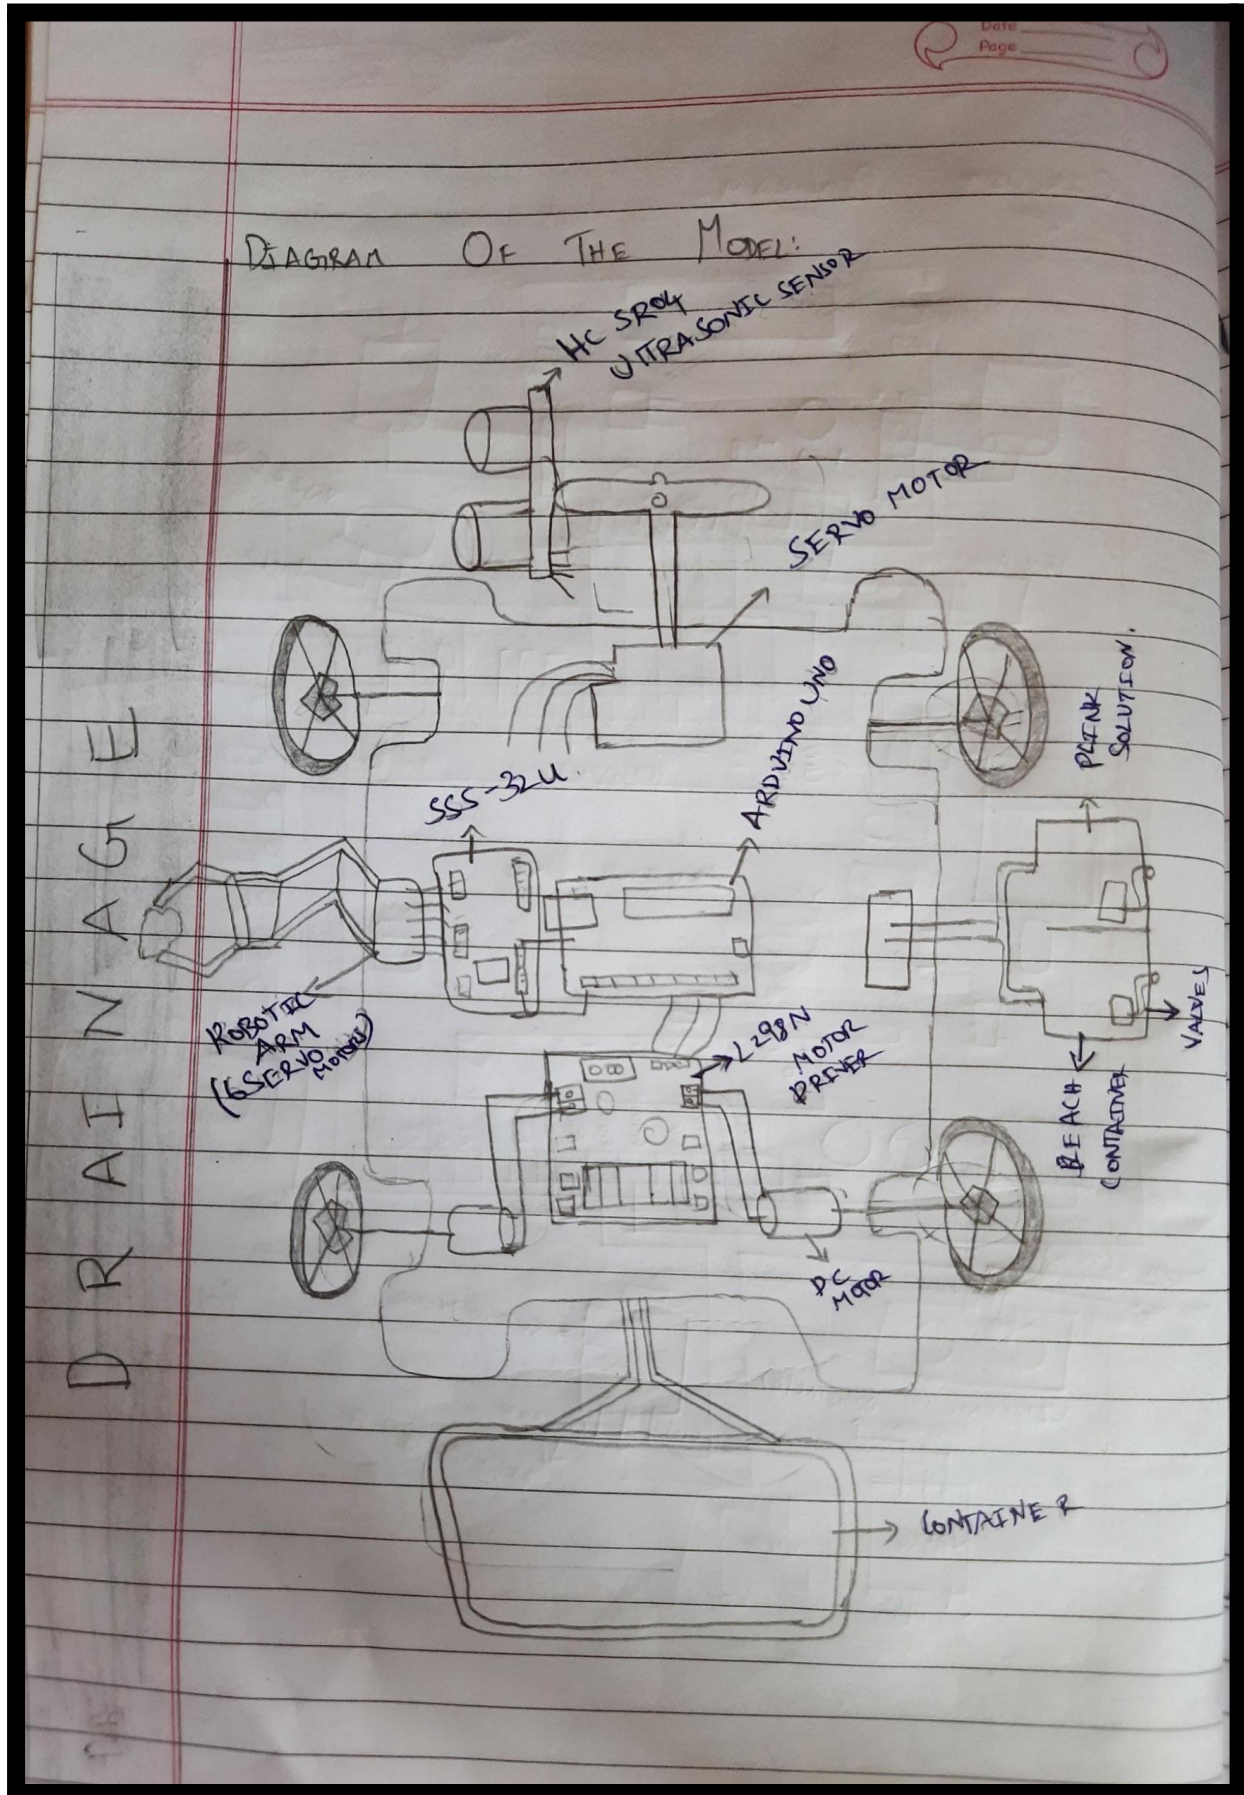 Date
Page
DIAGRAM OF THE MODEL:
HC SR04
ULTRASONIC SENSOR
SERVO MOTOR
ARDVINO UNO
SSS-32U.
PLINK
SOLUTION.
ROBOTIC
ARM
(6 SERVO
MOTORS)
L298N
MOTOR
DRIVER
VALVES
BEACH
CONTAINER
DC
MOTOR
CONTAINER
DRAINAGE